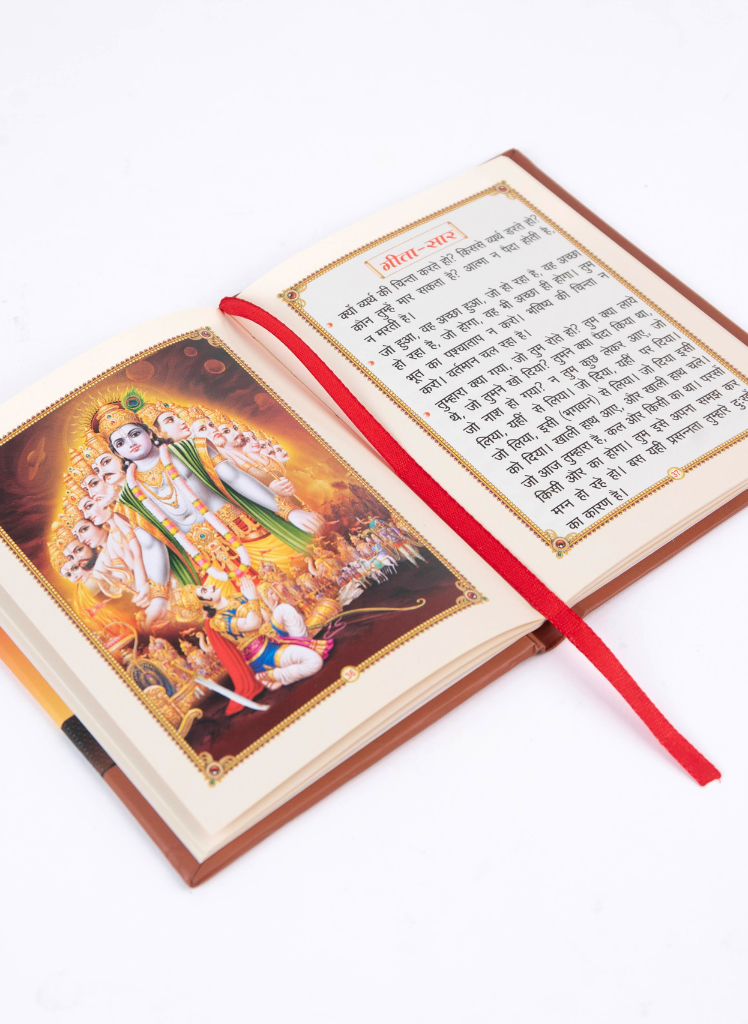 गीता-सार
क्यों व्यर्थ की चिन्ता करते हो? किससे व्यर्थ डरते हो?
कौन तुम्हें मार सकता है? आत्मा न पैदा होती है,
न मरती है।
जो हुआ, वह अच्छा हुआ, जो हो रहा है, वह अच्छा
हो रहा है, जो होगा, वह भी अच्छा ही होगा। तुम
भूत का पश्चाताप न करो। भविष्य की चिन्ता न
करो। वर्तमान चल रहा है।
तुम्हारा क्या गया, जो तुम रोते हो? तुम क्या लाये
थे, जो तुमने खो दिया? तुमने क्या पैदा किया था,
जो नाश हो गया? न तुम कुछ लेकर आए, जो
लिया, यहीं से लिया। जो दिया, यहीं पर दिया।
जो लिया, इसी (भगवान) से लिया। जो दिया इसी
को दिया। खाली हाथ आए, और खाली हाथ चले।
जो आज तुम्हारा है, कल और किसी का था। परसों
किसी और का होगा। तुम इसे अपना समझ कर
मग्न हो रहे हो। बस यही प्रसन्नता तुम्हारे
का कारण है।